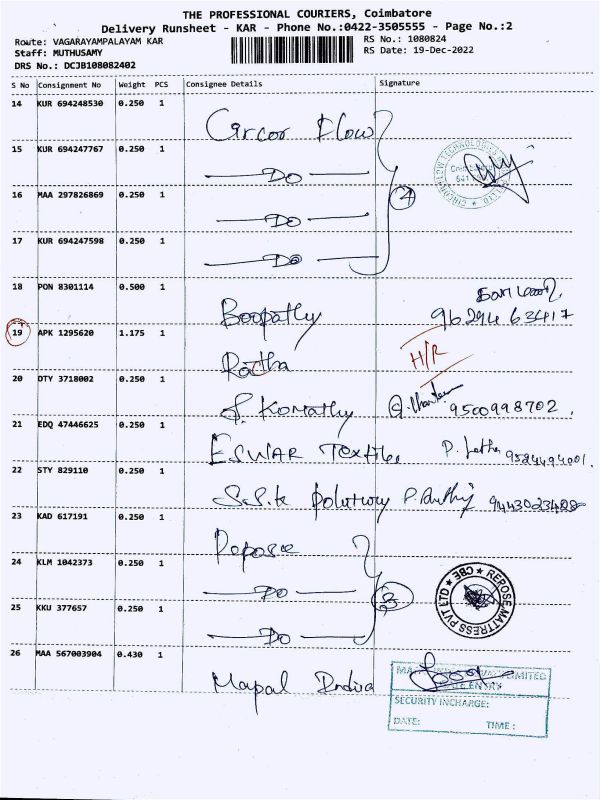 THE PROFESSIONAL COURIERS, Coimbatore
Delivery Runsheet - KAR - Phone No.:0422-3505555 - Page No.:2
Route: VAGARAYAMPALAYAM KAR
RS No.: 1080824
Staff: MUTHUSAMY
RS Date: 19-Dec-2022
DRS No.: DCJB108082402
S No Consignment No Weight PCS Consignee Details Signature
14 KUR 694248530 0.250 1 Circor Flow
15 KUR 694247767 0.250 1 Do
16 MAA 297826869 0.250 1 Do 4
17 KUR 694247598 0.250 1 Do
18 PON 8301114 0.500 1 Boopathy 96294 63417
19 APK 1295620 1.175 1 Radha H/R
20 DTY 3718002 0.250 1 S. Komathy 9500998702
21 EDQ 47446625 0.250 1 ESWAR Textiles P. Latha 9524494001
22 STY 829110 0.250 1 S.S.K
23 KAD 617191 0.250 1 Repose
24 KLM 1042373 0.250 1 Do 3
REPOSE MATTRESS PVT LTD ★ CBE ★
25 KKU 377657 0.250 1 Do
26 MAA 567003904 0.430 1 Mapal India
SECURITY INCHARGE:
DATE: TIME :